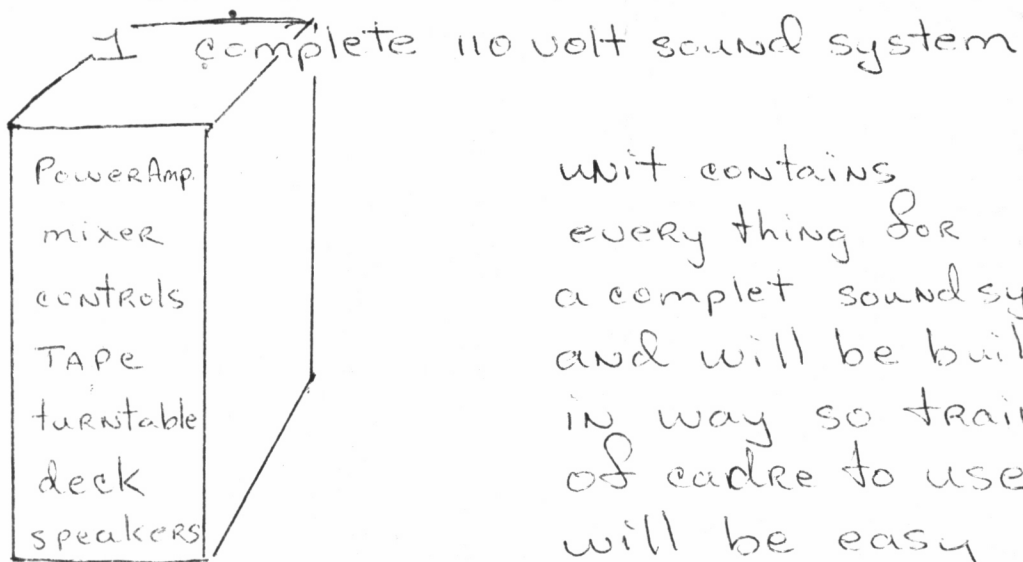 1 complete 110 volt sound system
PowerAmp.
mixer
controls
TAPe
turntable
deck
speakers
unit contains
every thing for
a complet sound sy
and will be buil
in way so train
of cadre to use
will be easy